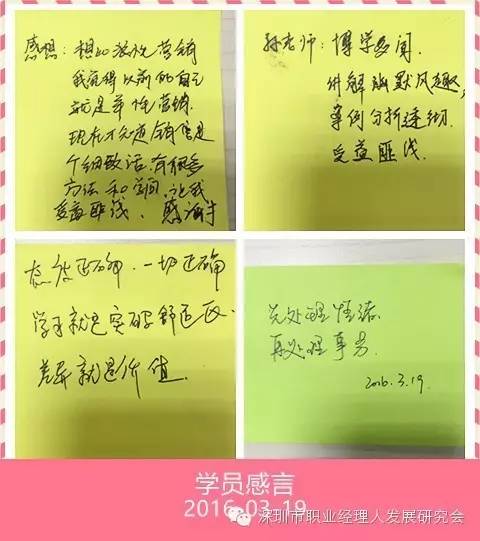 感想:想的狼性营销
我觉得以前的自己
就是羊性营销.
现在才知道销售是
个细致活.有很多
方法和学问,让我
受益匪浅、感谢
孙老师:博学多闻.
讲解幽默风趣,
案例分析透彻.
受益匪浅.
态度正确,一切正确
学习就是突破舒适区.
差异就是价值.
先处理情绪.
再处理事务.
2016.3.19.
学员感言
2016.03.19
深圳市职业经理人发展研究会